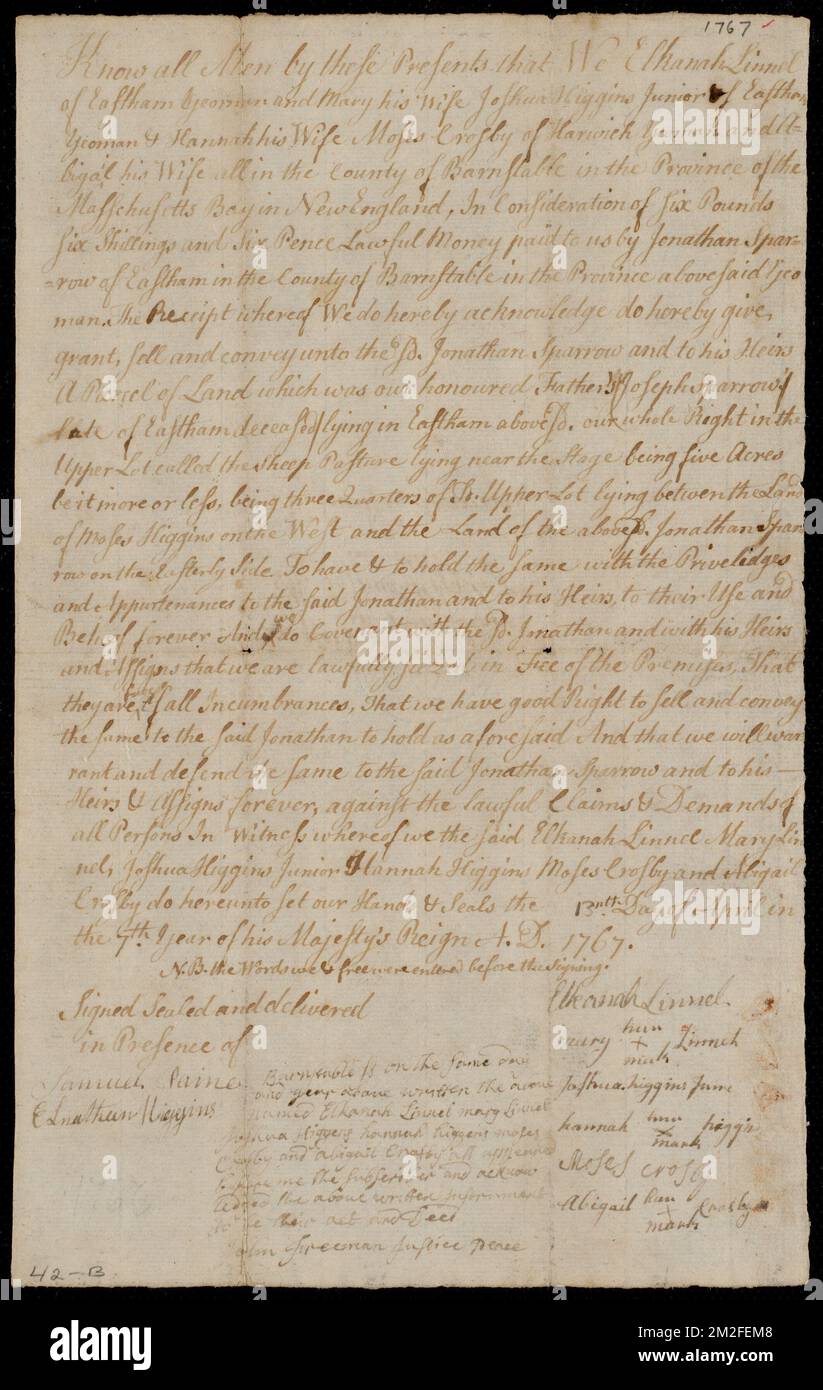 1767
Know all Men by these Presents that We Elkanah Linnel
of Eastham Yeoman and Mary his Wife Joshua Higgins Junior of Eastham
Yeoman & Hannah his Wife Moses Crosby of Harwich Yeoman and A=
bigal his Wife all in the County of Barnstable in the Province of the
Massachusetts Bay in New England, In Consideration of Six Pounds
Six Shillings and Six Pence Lawful Money paid to us by Jonathan Spar=
=row of Eastham in the County of Barnstable in the Province abovesaid Yeo
man. The Receipt whereof We do hereby acknowledge do hereby give,
grant, sell and convey unto the sd. Jonathan Sparrow and to his Heirs
A Parcel of Land which was our honoured Father's (Joseph Sparrow
late of Eastham deceased) lying in Eastham abovesd. our whole Right in the
Upper Lot called the Sheep Pasture lying near the Stage being five Acres
be it more or less, being three Quarters of sd. Upper Lot lying between the Land
of Moses Higgins on the West and the Land of the abovesd. Jonathan Spar
row on the Easterly Side To have & to hold the same with the Priveledges
and Appurtenances to the said Jonathan and to his Heirs, to their Use and
Behoof forever And we do Covenant with the sd. Jonathan and with his Heirs
and Assigns that we are lawfully seized in Fee of the Premises, That
they are free of all Incumbrances, That we have good Right to sell and convey
the same to the said Jonathan to hold as aforesaid And that we will war
rant and defend the same to the said Jonathan Sparrow and to his
Heirs & Assigns forever, against the lawful Claims & Demands of
all Persons In Witness whereof we the said Elkanah Linnel Mary Lin
nel, Joshua Higgins Junior Hannah Higgins Moses Crosby and Abigail
Crosby do hereunto set our Hands & Seals the 13nth Day of April in
the 7th Year of his Majesty's Reign A.D. 1767.
N.B. the Words we & free were entered before the signing.
Signed Sealed and delivered
in Presence of
Samuel Paine
Elnathan Higgins
Elkanah Linnel
mary hur x mark Linnel
Joshua higgins June
hannah hur x mark higgins
Moses Crosby
Abigail hur x mark Crosby
Barnstable ss on the same day
and year above written the above
named Elkanah Linnel mary Linnel
Joshua Higgens hannah higgens moses
Crosby and abigail Crosby all appeared
before me the subscriber and acknow
ledged the above written Instrument
to be their act and Deed
John Freeman Justice Peace
42-B
alamy
Image ID: 2M2FEM8
www.alamy.com